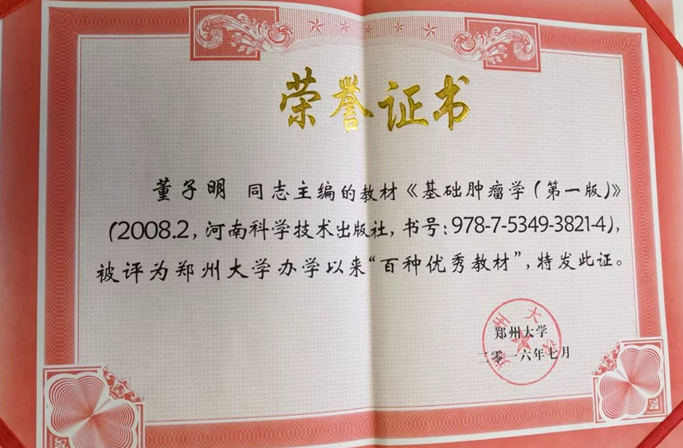 荣誉证书
董子明 同志主编的教材《基础肿瘤学(第一版)》
(2008.2, 河南科学技术出版社, 书号: 978-7-5349-3821-4),
被评为郑州大学办学以来“百种优秀教材”, 特发此证。
郑州大学
二零一六年七月